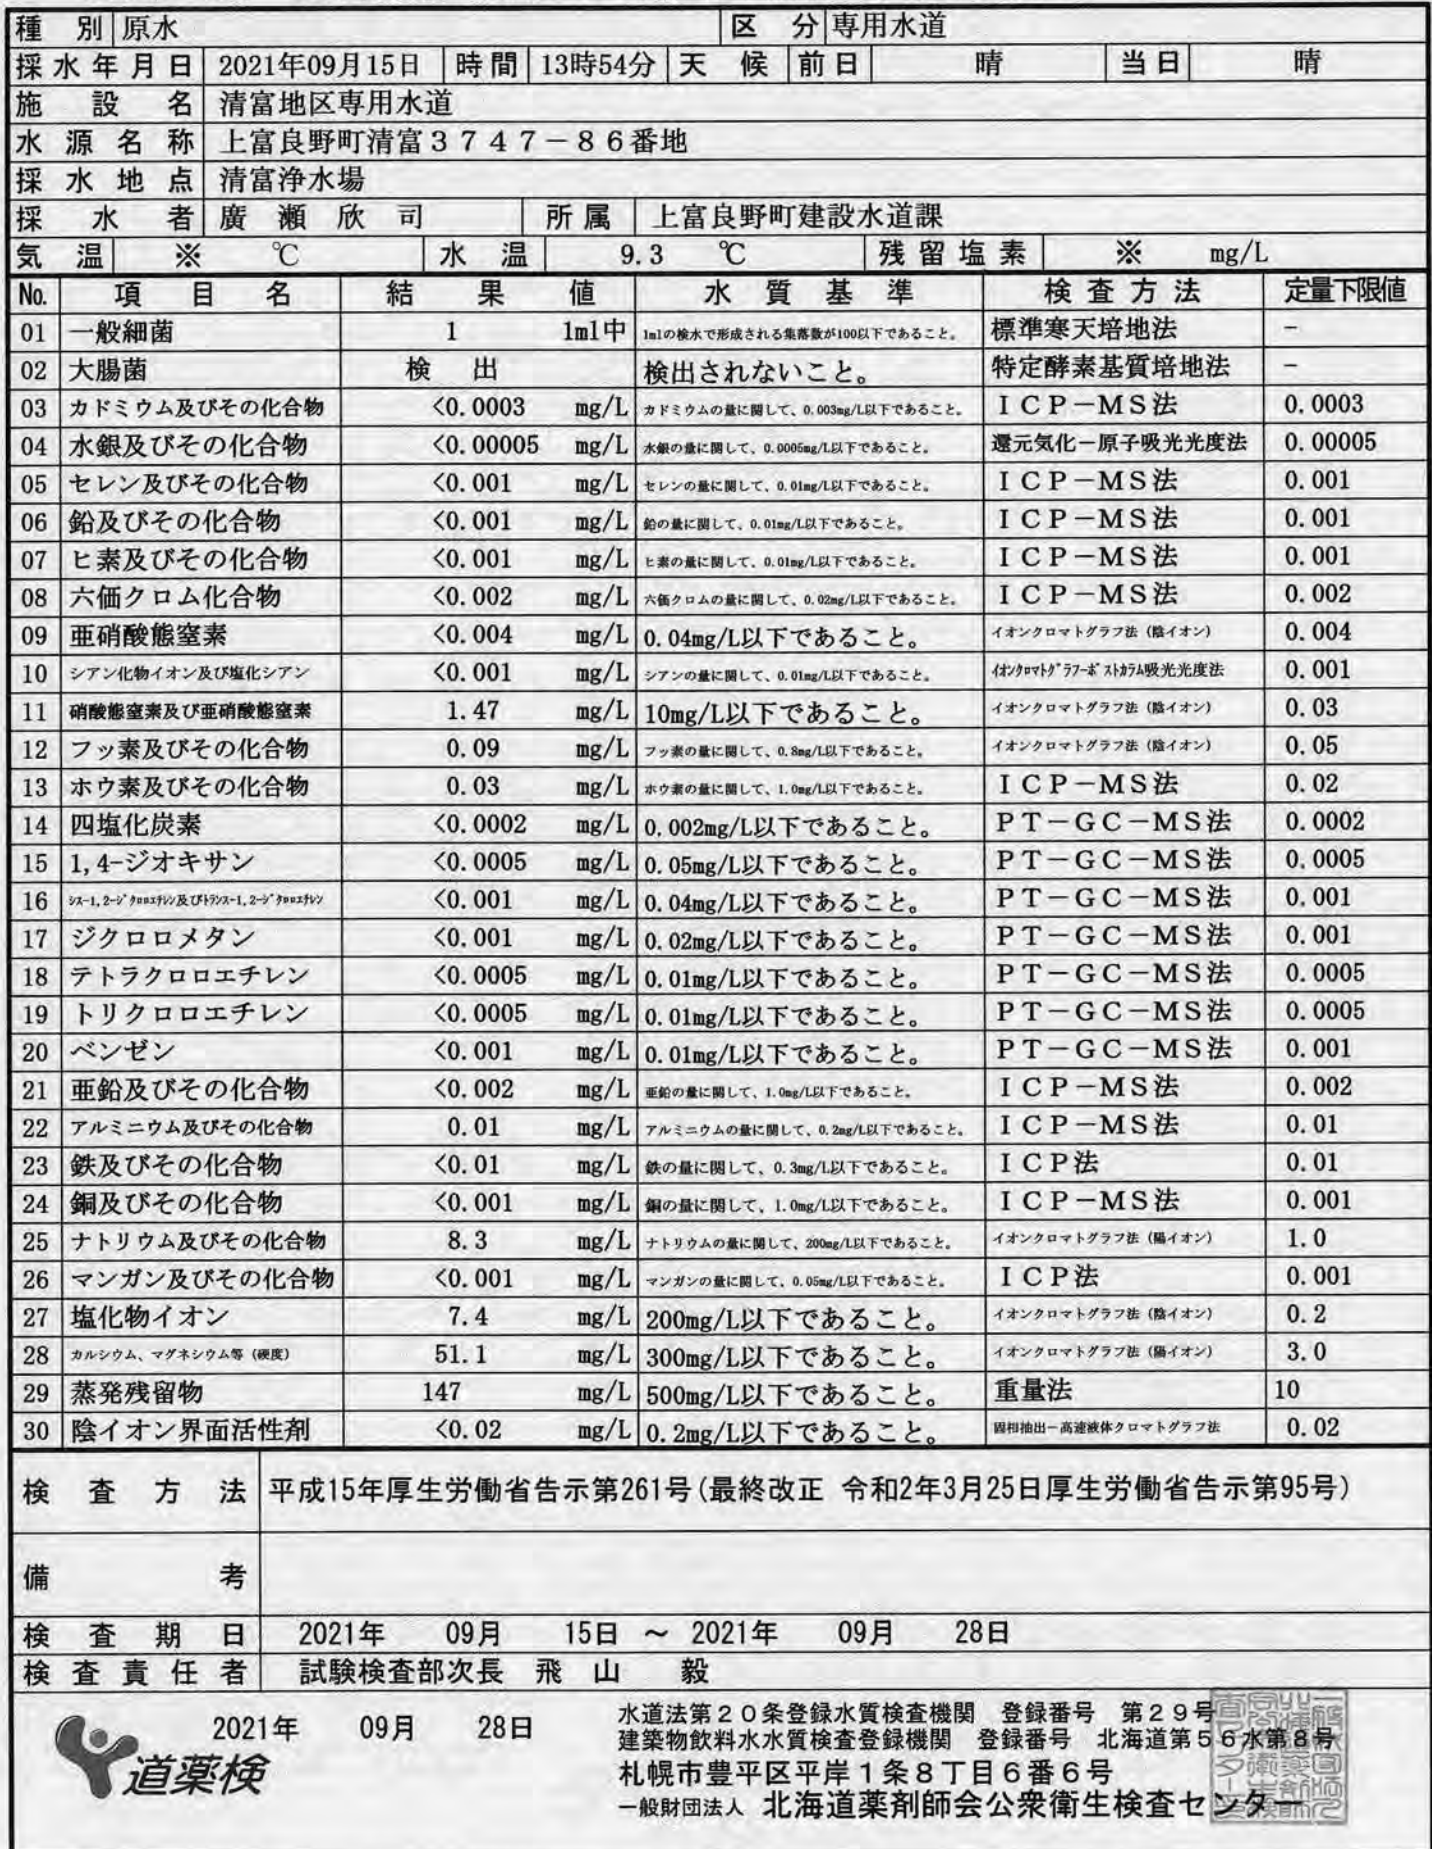 種別 原水 区分 専用水道
採水年月日 2021年09月15日 時間 13時54分 天候 前日 晴 当日 晴
施設名 清富地区専用水道
水源名称 上富良野町清富3747-86番地
採水地点 清富浄水場
採水者 廣瀬欣司 所属 上富良野町建設水道課
気温 ※ ℃ 水温 9.3 ℃ 残留塩素 ※ mg/L
No. 項目名 結果値 水質基準 検査方法 定量下限値
01 一般細菌 1 1ml中 1mlの検水で形成される集落数が100以下であること。 標準寒天培地法 -
02 大腸菌 検出 検出されないこと。 特定酵素基質培地法 -
03 カドミウム及びその化合物 <0.0003 mg/L カドミウムの量に関して、0.003mg/L以下であること。 ICP-MS法 0.0003
04 水銀及びその化合物 <0.00005 mg/L 水銀の量に関して、0.0005mg/L以下であること。 還元気化-原子吸光光度法 0.00005
05 セレン及びその化合物 <0.001 mg/L セレンの量に関して、0.01mg/L以下であること。 ICP-MS法 0.001
06 鉛及びその化合物 <0.001 mg/L 鉛の量に関して、0.01mg/L以下であること。 ICP-MS法 0.001
07 ヒ素及びその化合物 <0.001 mg/L ヒ素の量に関して、0.01mg/L以下であること。 ICP-MS法 0.001
08 六価クロム化合物 <0.002 mg/L 六価クロムの量に関して、0.02mg/L以下であること。 ICP-MS法 0.002
09 亜硝酸態窒素 <0.004 mg/L 0.04mg/L以下であること。 イオンクロマトグラフ法（陰イオン） 0.004
10 シアン化物イオン及び塩化シアン <0.001 mg/L シアンの量に関して、0.01mg/L以下であること。 イオンクロマトグラフ-ポストカラム吸光光度法 0.001
11 硝酸態窒素及び亜硝酸態窒素 1.47 mg/L 10mg/L以下であること。 イオンクロマトグラフ法（陰イオン） 0.03
12 フッ素及びその化合物 0.09 mg/L フッ素の量に関して、0.8mg/L以下であること。 イオンクロマトグラフ法（陰イオン） 0.05
13 ホウ素及びその化合物 0.03 mg/L ホウ素の量に関して、1.0mg/L以下であること。 ICP-MS法 0.02
14 四塩化炭素 <0.0002 mg/L 0.002mg/L以下であること。 PT-GC-MS法 0.0002
15 1,4-ジオキサン <0.0005 mg/L 0.05mg/L以下であること。 PT-GC-MS法 0.0005
16 シス-1,2-ジクロロエチレン及びトランス-1,2-ジクロロエチレン <0.001 mg/L 0.04mg/L以下であること。 PT-GC-MS法 0.001
17 ジクロロメタン <0.001 mg/L 0.02mg/L以下であること。 PT-GC-MS法 0.001
18 テトラクロロエチレン <0.0005 mg/L 0.01mg/L以下であること。 PT-GC-MS法 0.0005
19 トリクロロエチレン <0.0005 mg/L 0.01mg/L以下であること。 PT-GC-MS法 0.0005
20 ベンゼン <0.001 mg/L 0.01mg/L以下であること。 PT-GC-MS法 0.001
21 亜鉛及びその化合物 <0.002 mg/L 亜鉛の量に関して、1.0mg/L以下であること。 ICP-MS法 0.002
22 アルミニウム及びその化合物 0.01 mg/L アルミニウムの量に関して、0.2mg/L以下であること。 ICP-MS法 0.01
23 鉄及びその化合物 <0.01 mg/L 鉄の量に関して、0.3mg/L以下であること。 ICP法 0.01
24 銅及びその化合物 <0.001 mg/L 銅の量に関して、1.0mg/L以下であること。 ICP-MS法 0.001
25 ナトリウム及びその化合物 8.3 mg/L ナトリウムの量に関して、200mg/L以下であること。 イオンクロマトグラフ法（陽イオン） 1.0
26 マンガン及びその化合物 <0.001 mg/L マンガンの量に関して、0.05mg/L以下であること。 ICP法 0.001
27 塩化物イオン 7.4 mg/L 200mg/L以下であること。 イオンクロマトグラフ法（陰イオン） 0.2
28 カルシウム、マグネシウム等（硬度） 51.1 mg/L 300mg/L以下であること。 イオンクロマトグラフ法（陽イオン） 3.0
29 蒸発残留物 147 mg/L 500mg/L以下であること。 重量法 10
30 陰イオン界面活性剤 <0.02 mg/L 0.2mg/L以下であること。 固相抽出-高速液体クロマトグラフ法 0.02
検査方法 平成15年厚生労働省告示第261号(最終改正 令和2年3月25日厚生労働省告示第95号)
備考
検査期日 2021年 09月 15日 ～ 2021年 09月 28日
検査責任者 試験検査部次長 飛山 毅
水道法第20条登録水質検査機関 登録番号 第29号
2021年 09月 28日
建築物飲料水水質検査登録機関 登録番号 北海道第56水第8号
道薬検
札幌市豊平区平岸1条8丁目6番6号
一般財団法人 北海道薬剤師会公衆衛生検査センター